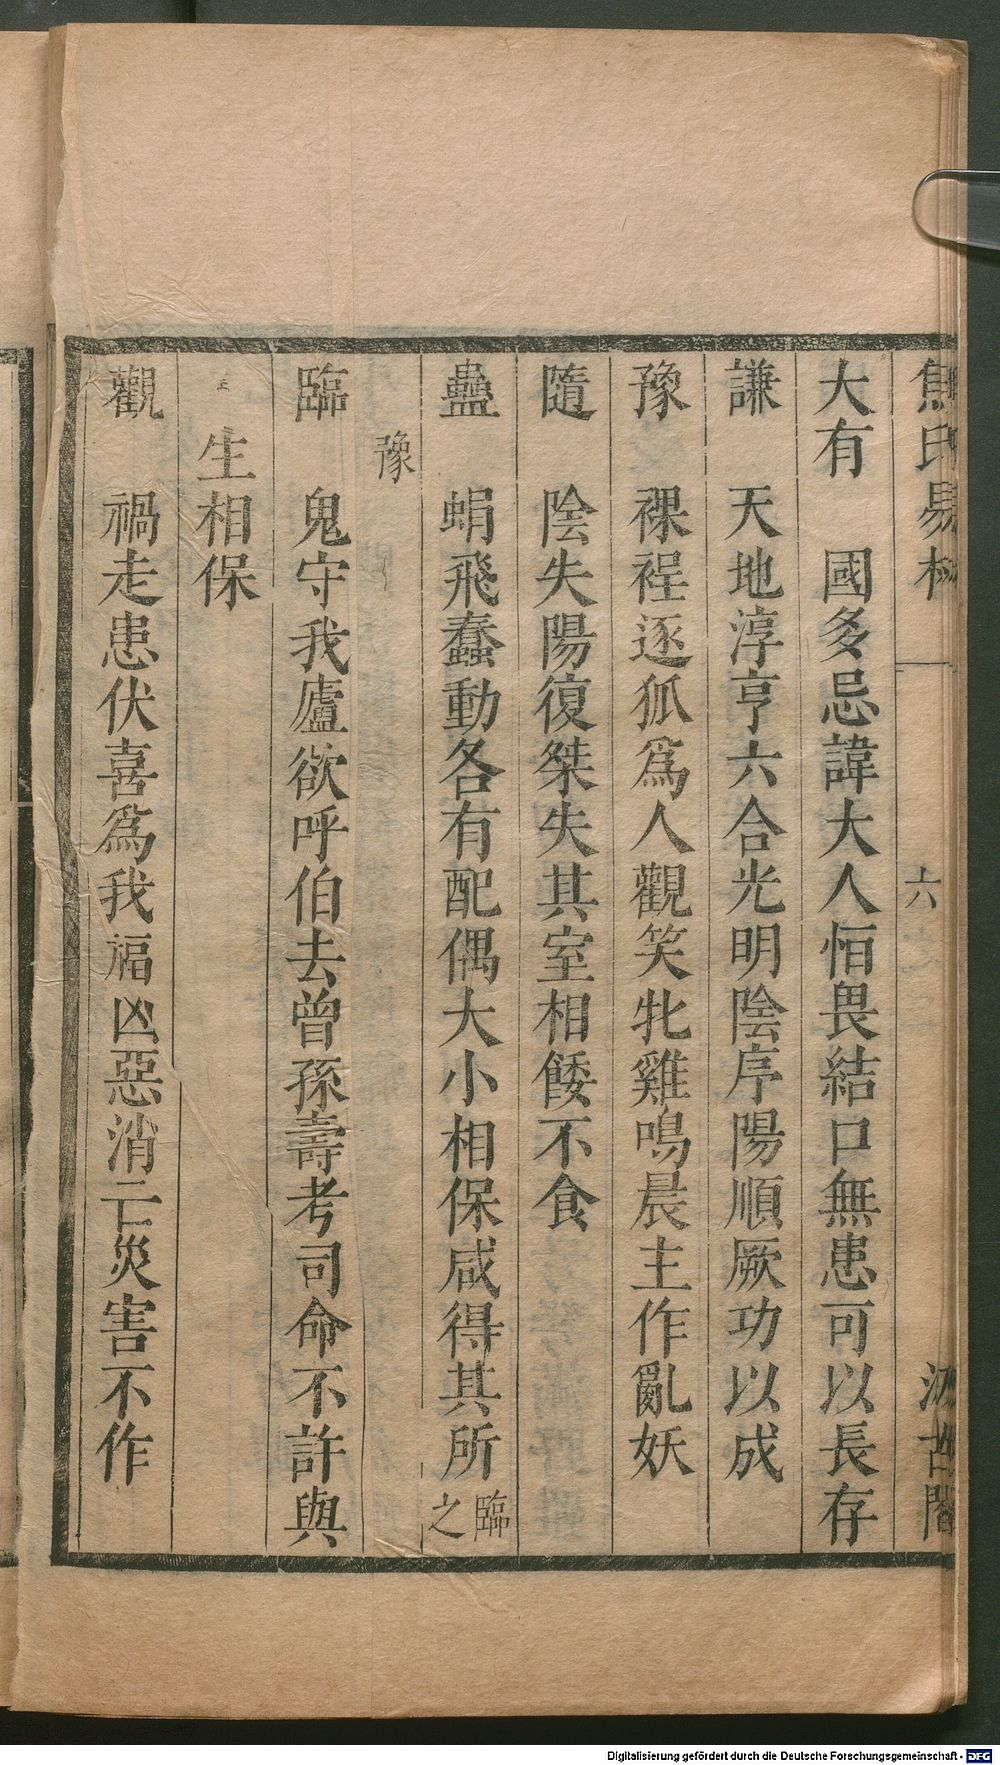 焦氏易林 六 汲古閣
大有 國多忌諱大人恒畏結口無患可以長存
謙 天地淳亨六合光明陰序陽順厥功以成
豫 裸裎逐狐爲人觀笑牝雞鳴晨主作亂妖
隨 陰失陽復桀失其室相餧不食
蠱 蜎飛蠢動各有配偶大小相保咸得其所 臨之
豫
臨 鬼守我廬欲呼伯去曾孫壽考司命不許與
生相保
觀 禍走患伏喜爲我福凶惡消亡災害不作
Digitalisierung gefördert durch die Deutsche Forschungsgemeinschaft - DFG